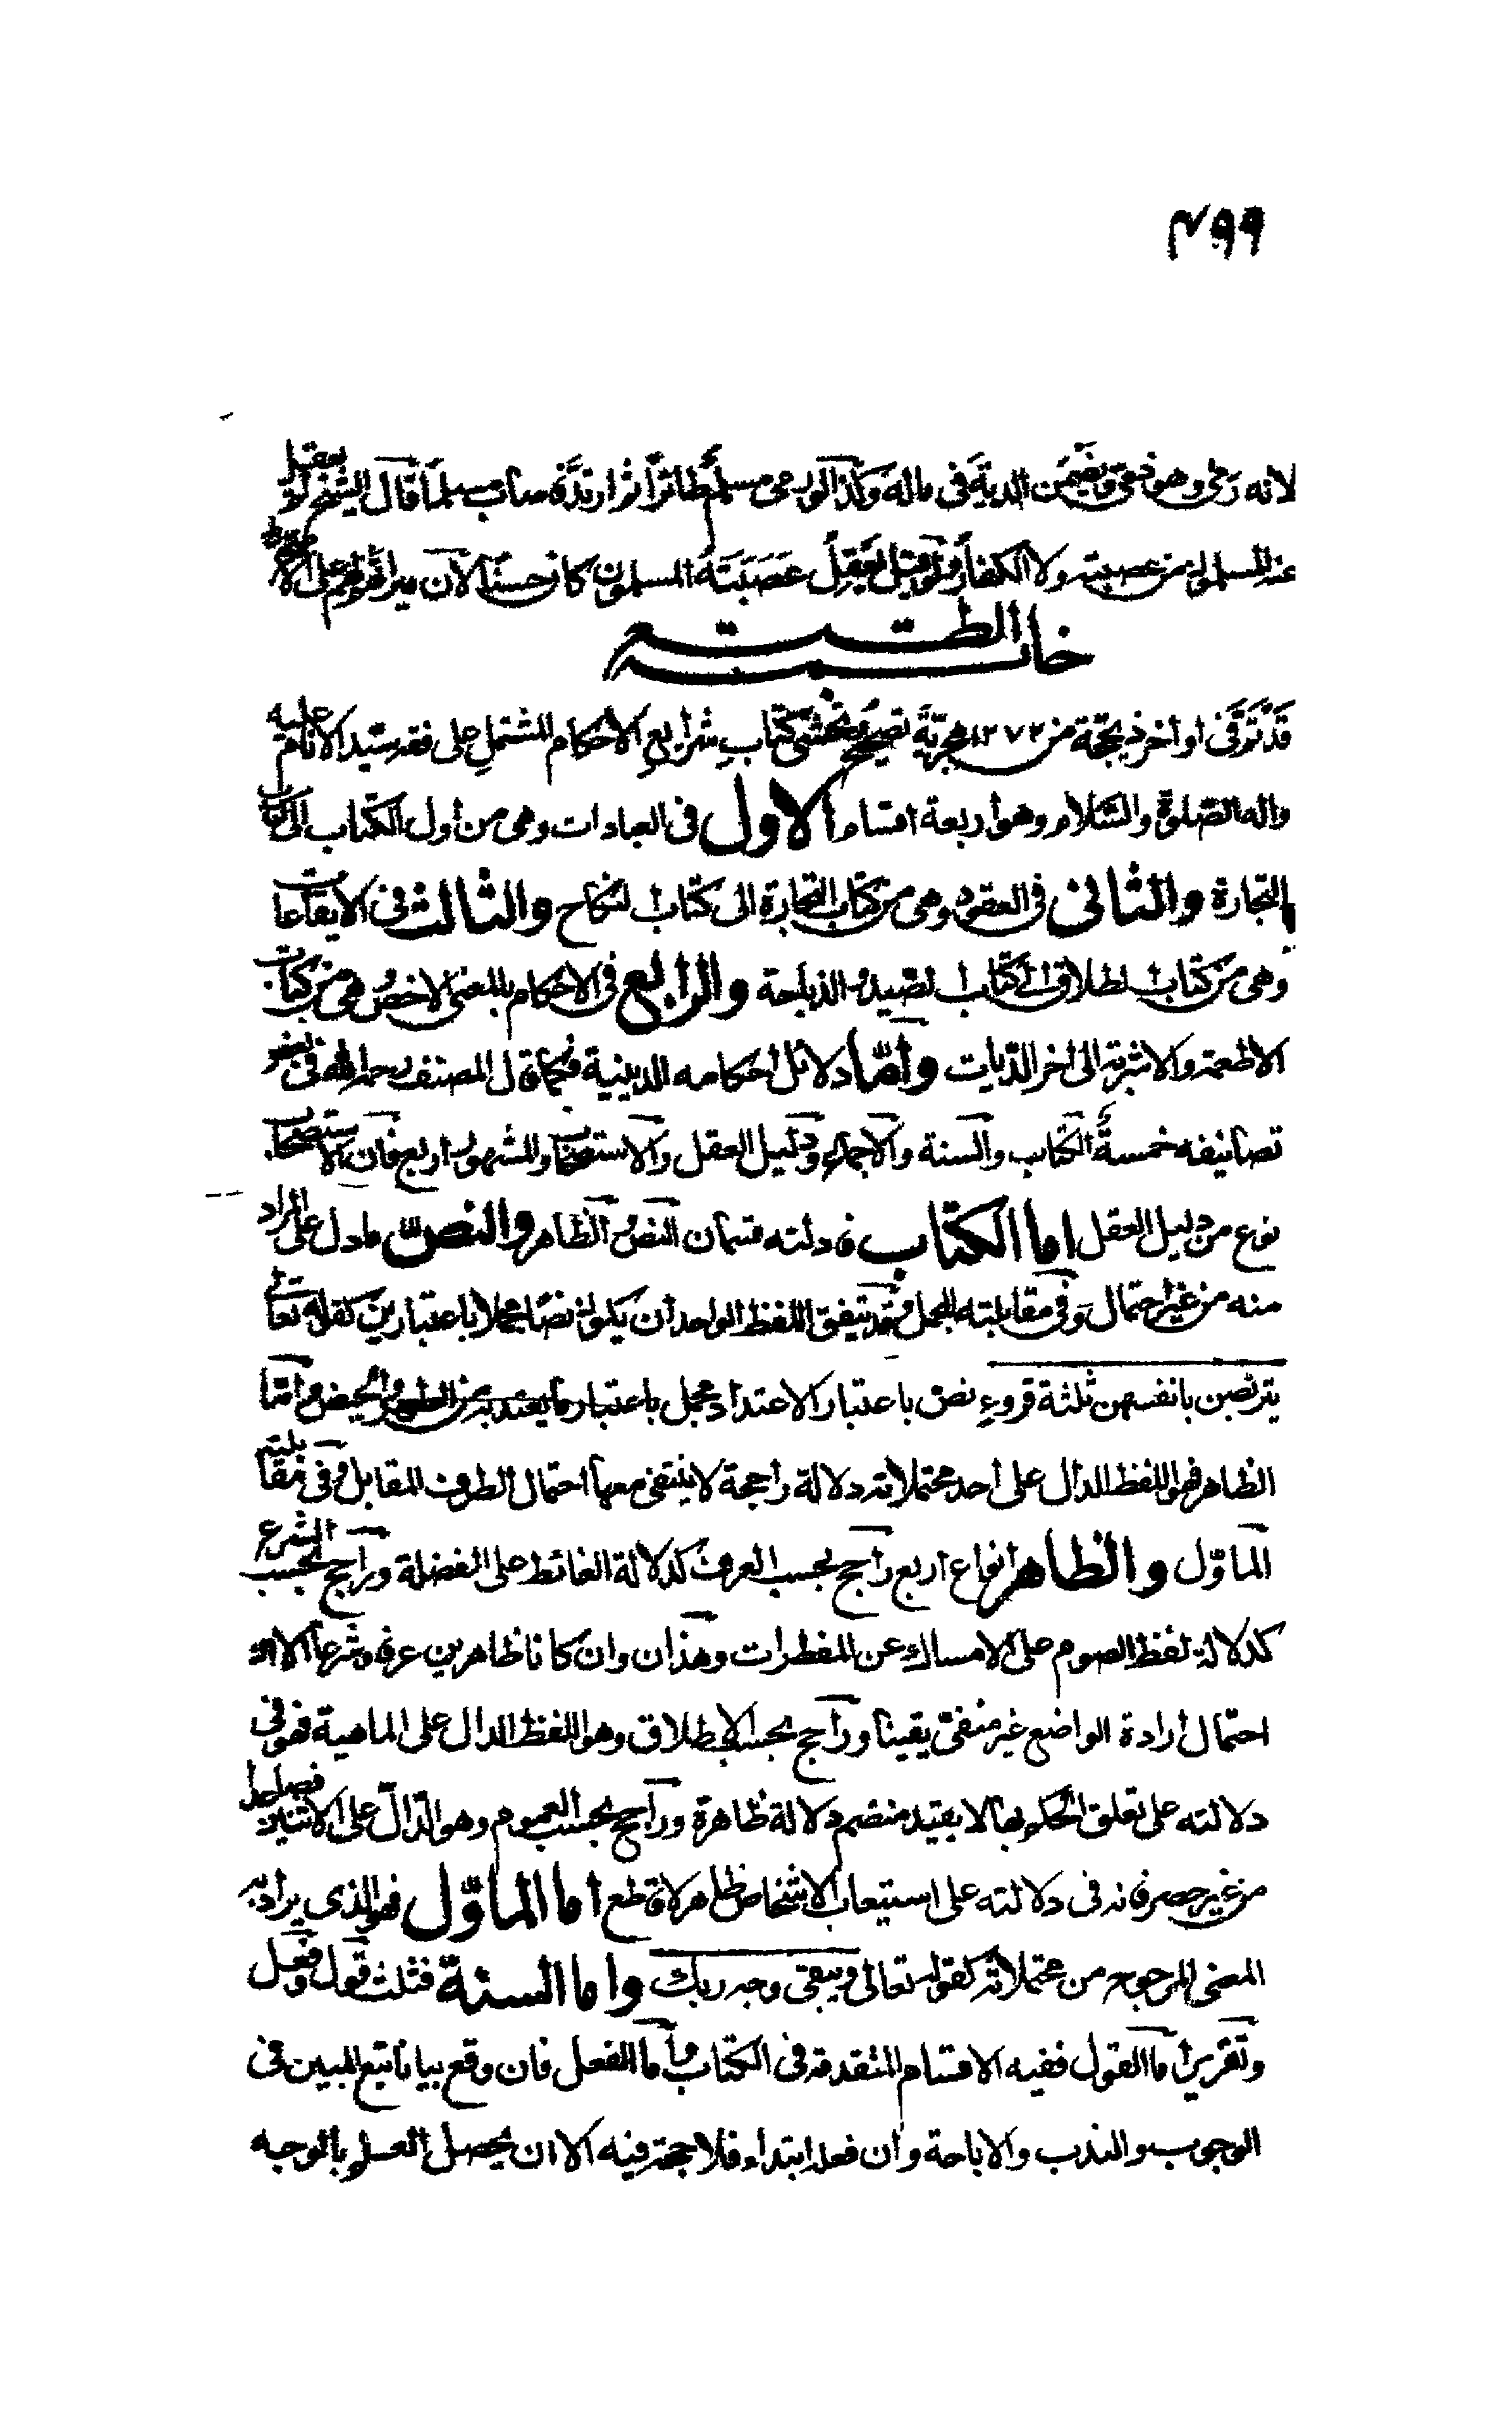 ٤٩٩
لانه رمى وهو ذمى ويضمن الدية فى ماله وكذا لو رمى مسلم طائرا ثم ارتد فاصاب مسلما قال الشيخ لا يعقل
عنه المسلمون من عصبته ولا الكفار ولو قيل يعقل عصبته المسلمون كان حسنا لان ميراثه لهم على الاصح
خاتمة الطبع
قد توفق فى اواخر ذيحجة من ١٢٧٣ هجرية تصحيح وتحشى كتاب شرايع الاحكام المشتمل على فقه سيد الانام عليه
واله الصلوة والسلام وهو اربعة اقسام الاول فى العبادات وهى من اول الكتاب الى كتاب
التجارة والثانى فى العقود وهى من كتاب التجارة الى كتاب النكاح والثالث فى الايقاعات
وهى من كتاب الطلاق الى كتاب الصيد والذباحة والرابع فى الاحكام بالمعنى الاخص وهى من كتاب
الاطعمة والاشربة الى اخر الديات واما دلائل احكامه الدينية فكما قال المصنف رحمه الله فى بعض
تصانيفه خمسة الكتاب والسنة والاجماع ودليل العقل والاستصحاب والمشهور اربع فان الاستصحاب
نوع من دليل العقل اما الكتاب فادلته قسمان النص والظاهر والنص ما دل على المراد
منه من غير احتمال وفى مقابلته المجمل وقد يتفق اللفظ الواحد ان يكون نصا مجملا باعتبارين كقوله تعالى
يتربصن بانفسهن ثلثة قروء نص باعتبار الاعتداد مجمل باعتبار ما يعتد به من الطهر والحيض واما
الظاهر فهو اللفظ الدال على احد محتملاته دلالة راجحة لا ينتفى معها احتمال الطرف المقابل وفى مقابلته
الماوّل والظاهر انواع اربع راجح بحسب العرف كدلالة الغائط على الفضلة وراجح بحسب الشرع
كدلالة لفظ الصوم على الامساك عن المفطرات وهذان وان كانا ظاهرين عرفا وشرعا الا ان
احتمال ارادة الواضع غير منفى يقينا وراجح بحسب الاطلاق وهو اللفظ الدال على الماهية فهو فى
دلالته على تعلق الحكم بها لا بقيد منضم دلالة ظاهرة وراجح بحسب العموم وهو الدّال على الاثنين فصاعدا
من غير حصر فانه فى دلالته على استيعاب الاشخاص ظاهر لا قاطع اما الماوّل فهو الذى يراد به
المعنى المرجوح من محتملاته كقوله تعالى ويبقى وجه ربك واما السنة فثلث قول وفعل
وتقرير اما القول ففيه الاقسام المتقدمة فى الكتاب واما الفعل فان وقع بيانا تبع المبين فى
الوجوب والندب والاباحة وان فعله ابتداء فلا حجة فيه الا ان يحصل العلم بالوجه